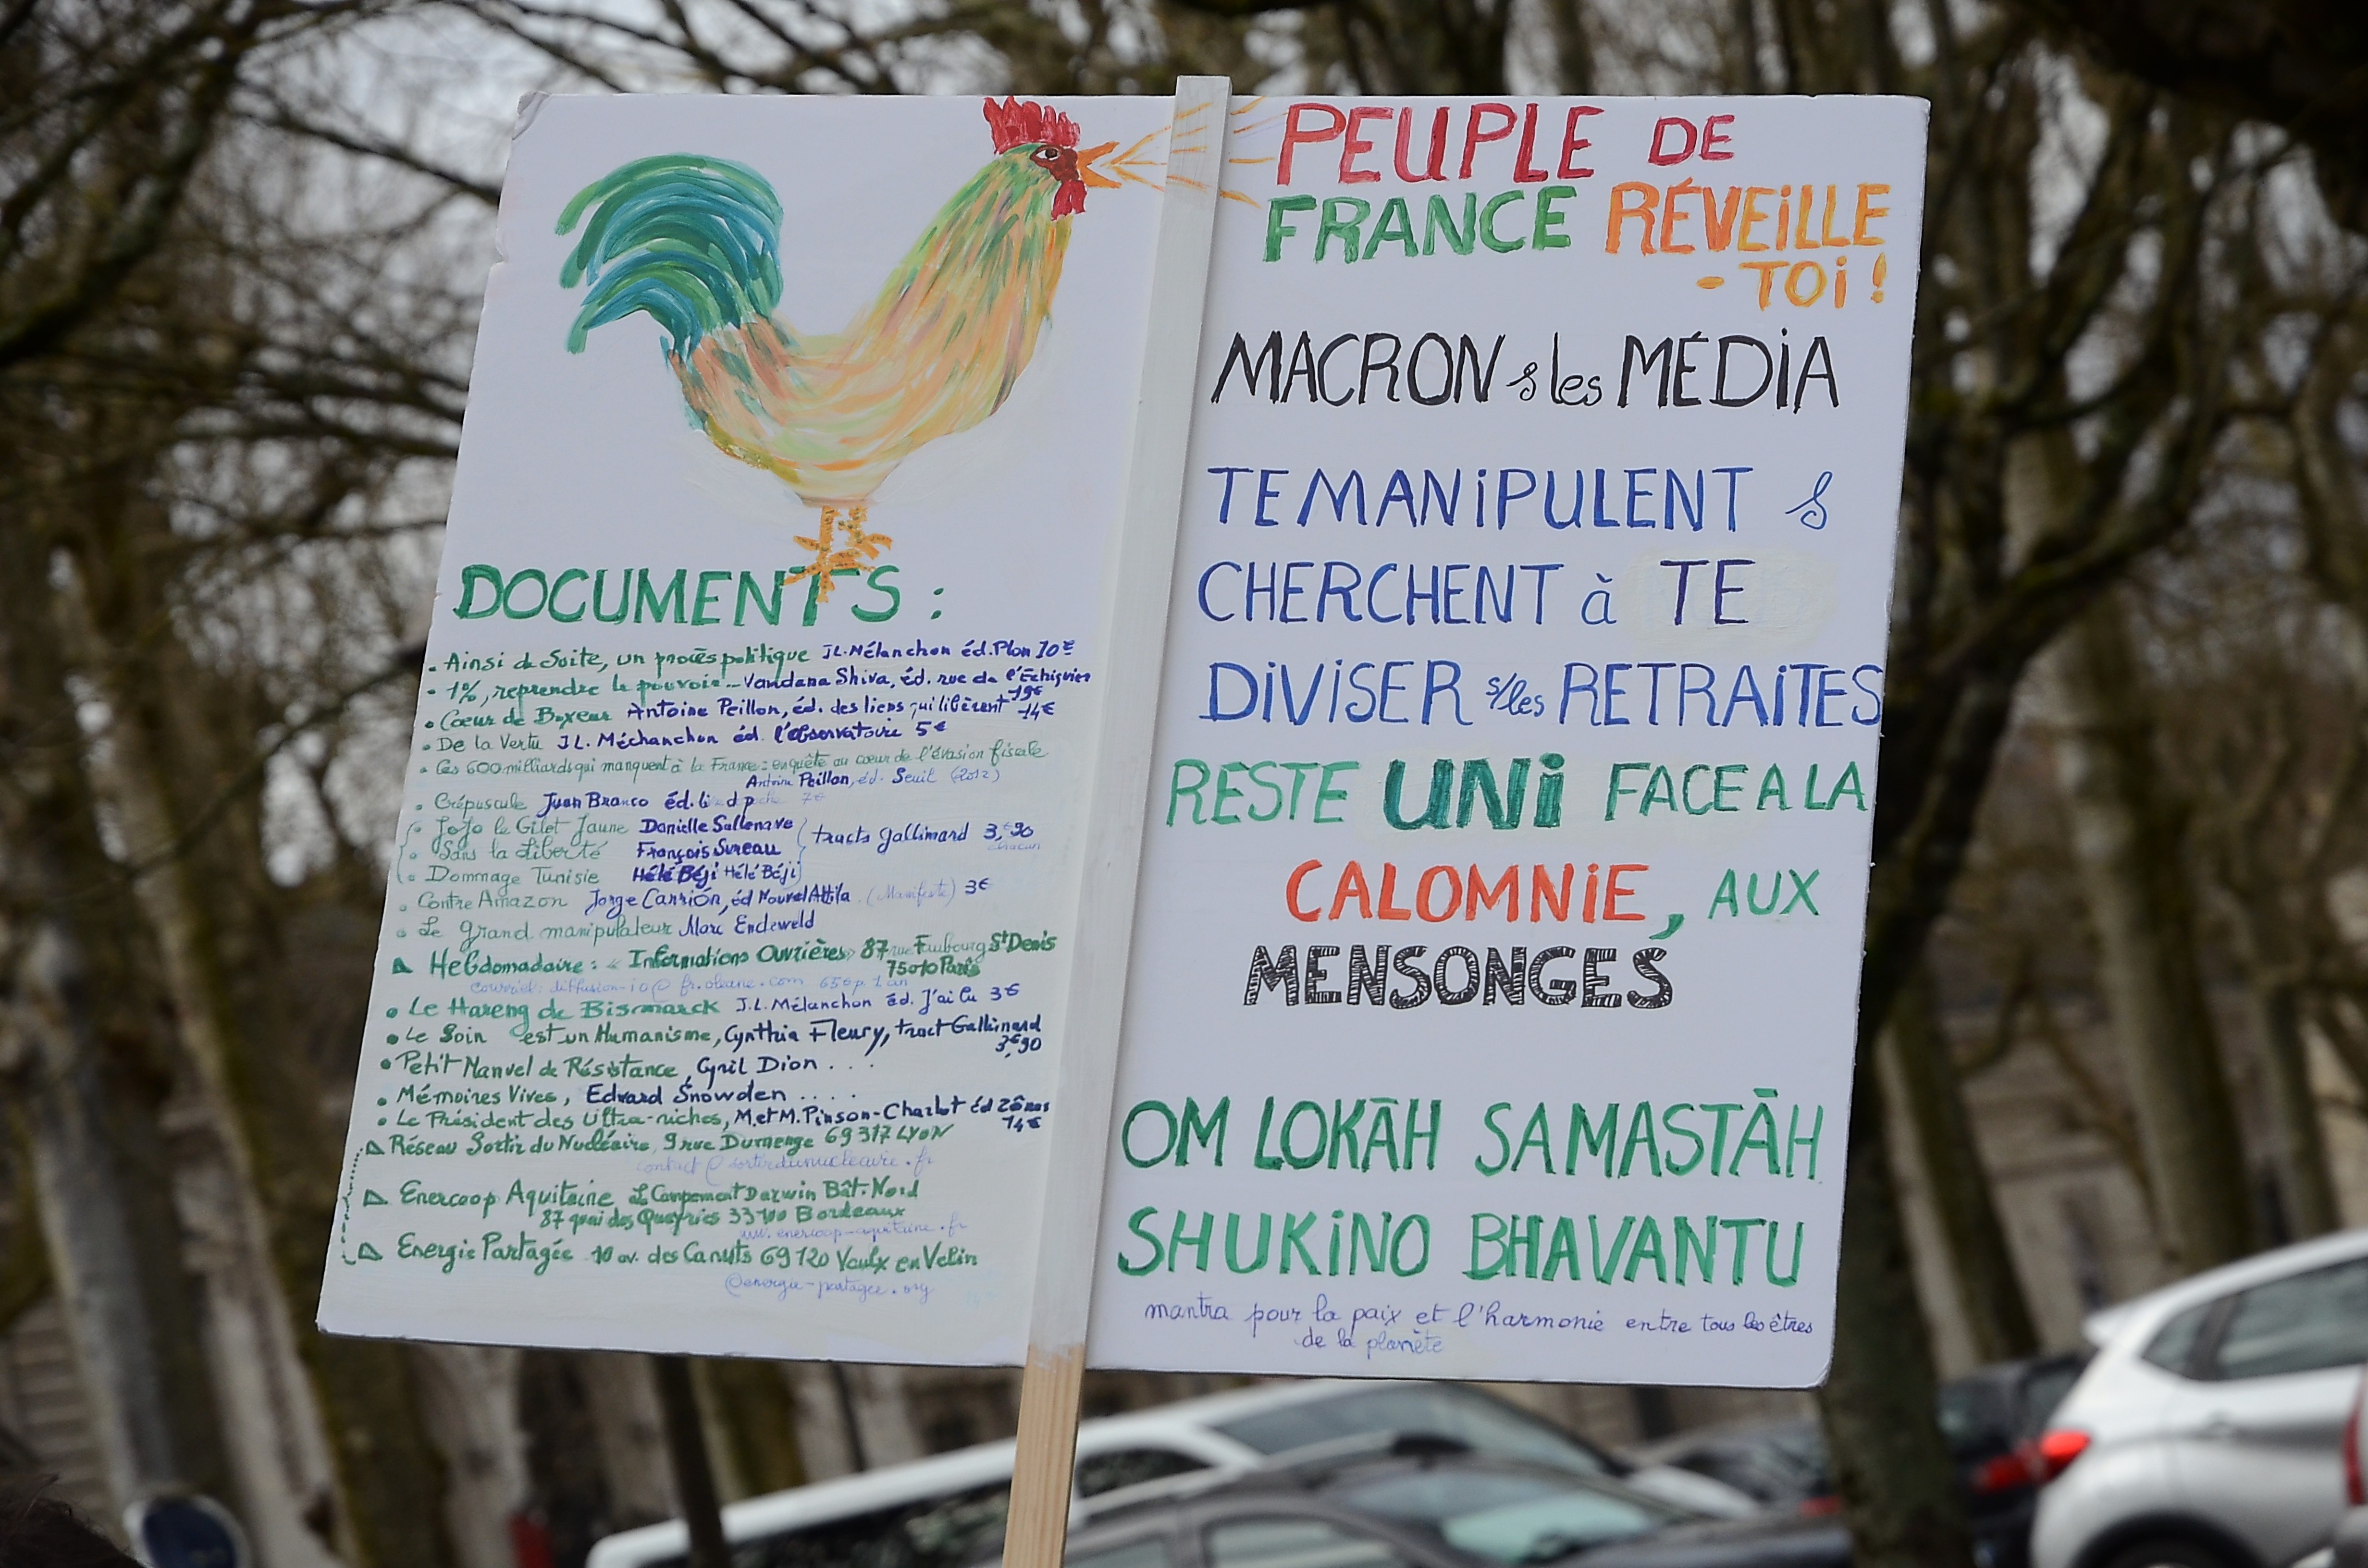 DOCUMENTS :
• Ainsi de Suite, un procès politique J.L. Mélanchon éd. Plon 10€
• 1%, reprendre le pouvoir... Vandana Shiva, éd. rue de l'Échiquier
19€
• Cœur de Boxeur Antoine Peillon, éd. des liens qui libèrent 14€
• De la Vertu J.L. Méchanchon éd. l'observatoire 5€
• Ces 600 milliards qui manquent à la France : enquête au cœur de l'évasion fiscale
Antoine Peillon, éd. Seuil (2012)
• Crépuscule Juan Branco éd. li d poche 7€
• JoJo le Gilet Jaune Danielle Sallenave
• Sans la Liberté François Sureau
• Dommage Tunisie Hélé Béji Hélé Béji
tracts Gallimard 3,€90
chacun
• Contre Amazon Jorge Carrión, éd Nouvel Attila (Manifeste) 3€
• Le grand manipulateur Marc Endeweld
Hebdomadaire : « Informations Ouvrières » 87 rue Faubourg St Denis
75010 Paris
courriel : diffusion-io@fr.oleane.com 65€ p. 1 an
• Le Hareng de Bismarck J.L. Mélanchon éd. J'ai lu 3€
• Le Soin est un Humanisme, Cynthia Fleury, tract Gallimard
3,€90
• Petit Manuel de Résistance, Cyril Dion . . .
• Mémoires Vives, Edward Snowden . . . .
• Le Président des Ultra-riches, M et M. Pinson-Charlot éd Zônes
14€
Réseau Sortir du Nucléaire, 9 rue Dumenge 69317 LYON
contact@sortirdunucleaire.fr
Enercoop Aquitaine Le Campement Darwin Bât. Nord
87 quai des Queyries 33100 Bordeaux
www.enercoop-aquitaine.fr
Energie Partagée 10 av. des Canuts 69120 Vaulx en Velin
@energie-partagee.org
PEUPLE DE
FRANCE RÉVEILLE
- TOI !
MACRON & les MÉDIA
TE MANIPULENT &
CHERCHENT à TE
DIVISER s/les RETRAITES
RESTE UNI FACE A LA
CALOMNIE, AUX
MENSONGES
OM LOKĀH SAMASTĀH
SHUKINO BHAVANTU
mantra pour la paix et l'harmonie entre tous les êtres
de la planète